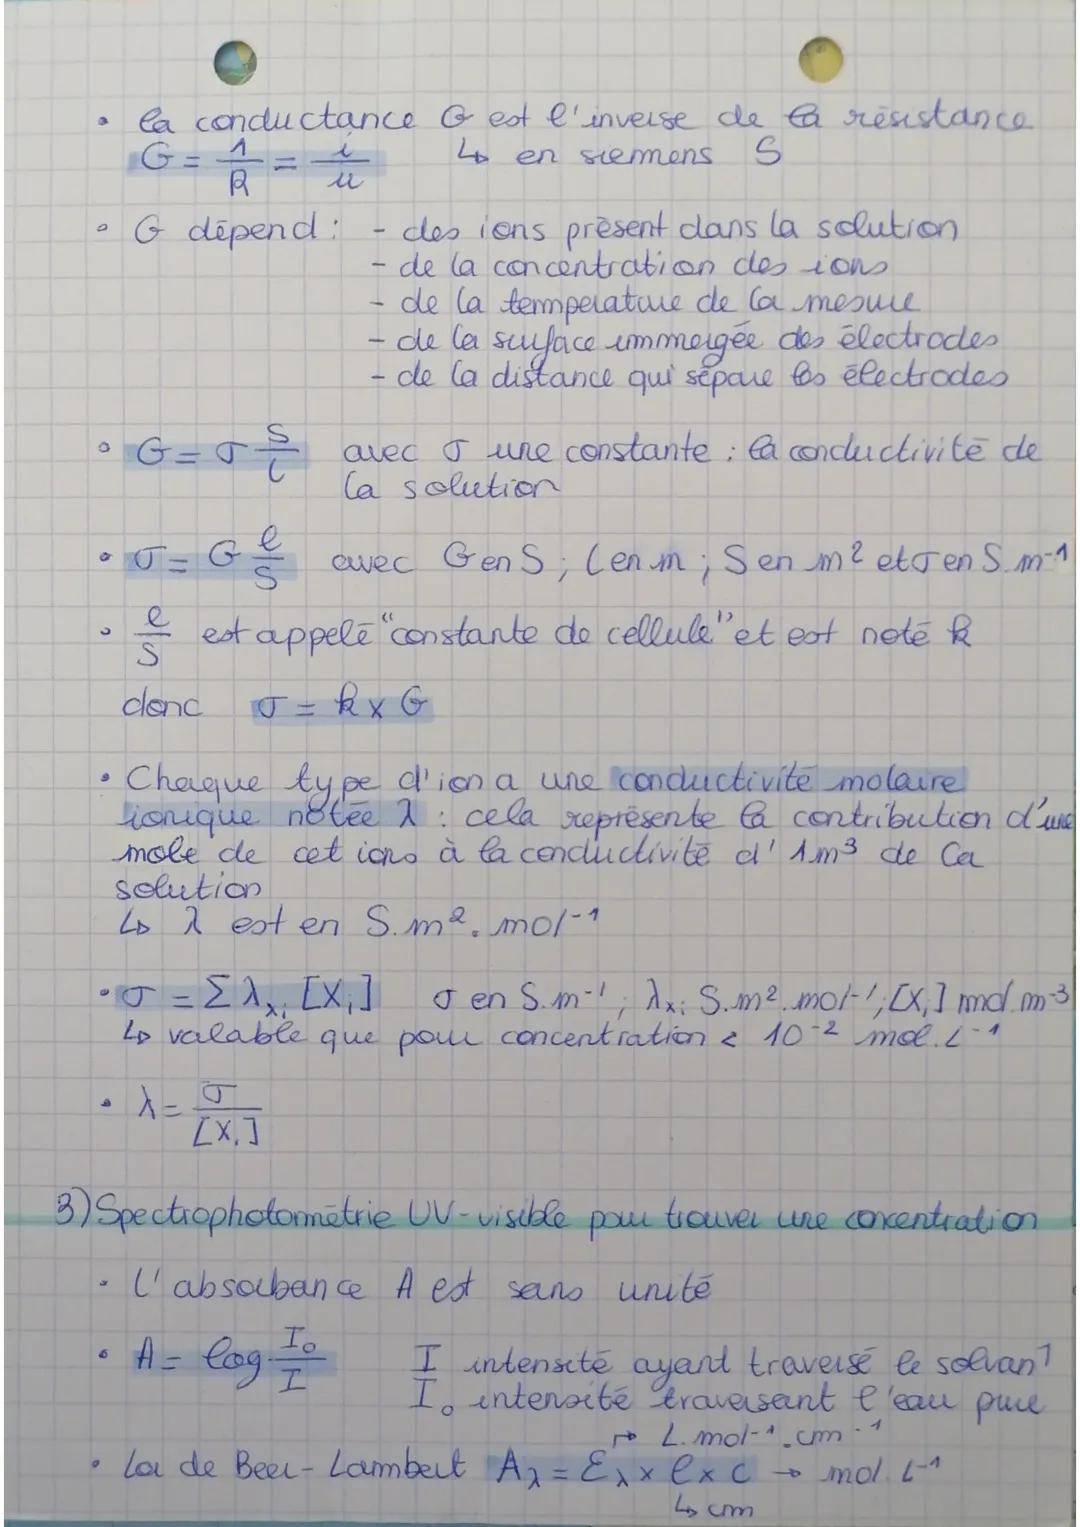 • la conductance G est l'inverse de la résistance
G = 1/R = i/u ↳ en siemens S
• G dépend : - des ions présent dans la solution
- de la concentration des ions
- de la température de la mesure
- de la surface immergée des électrodes
- de la distance qui sépare les électrodes
• G = σ S/l avec σ une constante : la conductivité de
la solution
• σ = G l/S avec G en S ; l en m ; S en m² et σ en S.m⁻¹
• l/S est appelé "constante de cellule" et est noté k
donc σ = k x G
• Chaque type d'ion a une conductivité molaire
ionique notée λ : cela représente la contribution d'une
mole de cet ions à la conductivité d'1m³ de la
solution
↳ λ est en S.m².mol⁻¹
• σ = Σ λxᵢ [Xᵢ] σ en S.m⁻¹ ; λxᵢ S.m².mol⁻¹ ; [Xᵢ] mol.m⁻³
↳ valable que pour concentration < 10⁻² mol.L⁻¹
• λ = σ/[Xᵢ]
3) Spectrophotométrie UV-visible pour trouver une concentration
• L'absorbance A est sans unité
• A = log I₀/I I intensité ayant traversé le solvant
I₀ intensité traversant l'eau pure
↱ L.mol⁻¹.cm⁻¹
• Loi de Beer-Lambert Aλ = Ελ x l x c → mol.L⁻¹
↳ cm